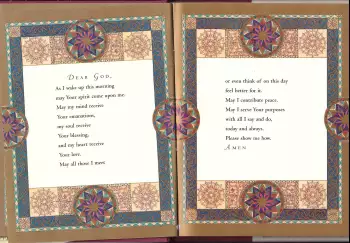 DEAR GOD,
As I wake up this morning
may Your spirit come upon me.
May my mind receive
Your emanations,
my soul receive
Your blessing,
and my heart receive
Your love.
May all those I meet
or even think of on this day
feel better for it.
May I contribute peace.
May I serve Your purposes
with all I say and do,
today and always.
Please show me how.
AMEN